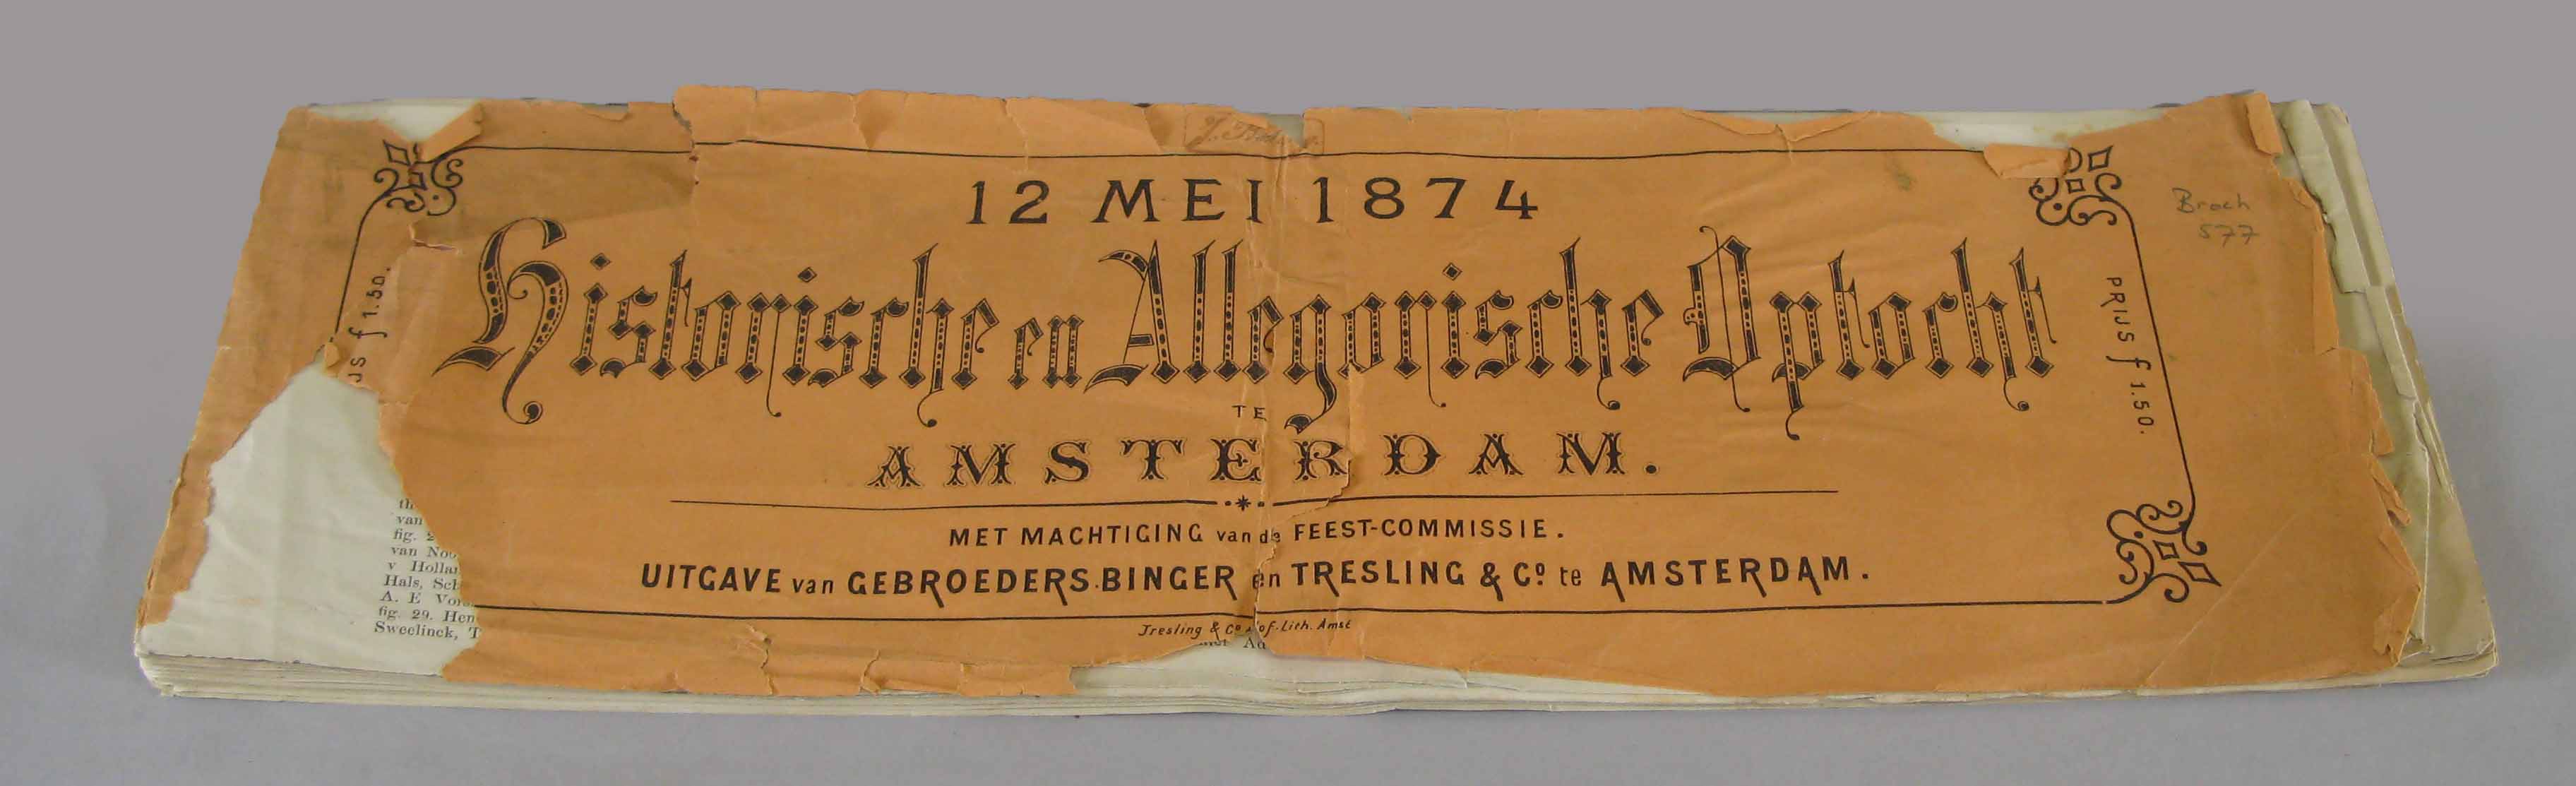 12 MEI 1874
Historische en Allegorische Optocht
TE
AMSTERDAM.
MET MACHTIGING van de FEEST-COMMISSIE.
UITGAVE van GEBROEDERS BINGER en TRESLING & Co. te AMSTERDAM.
Tresling & Co. Hof-Lith. Amst
JS f 1.50.
PRIJS f 1.50.
Broch
577
th
van
fig. 2
van Noo
v Hollan
Hals, Sch
A. E Vor
fig. 29. Hen
Sweelinck, T
met Ad